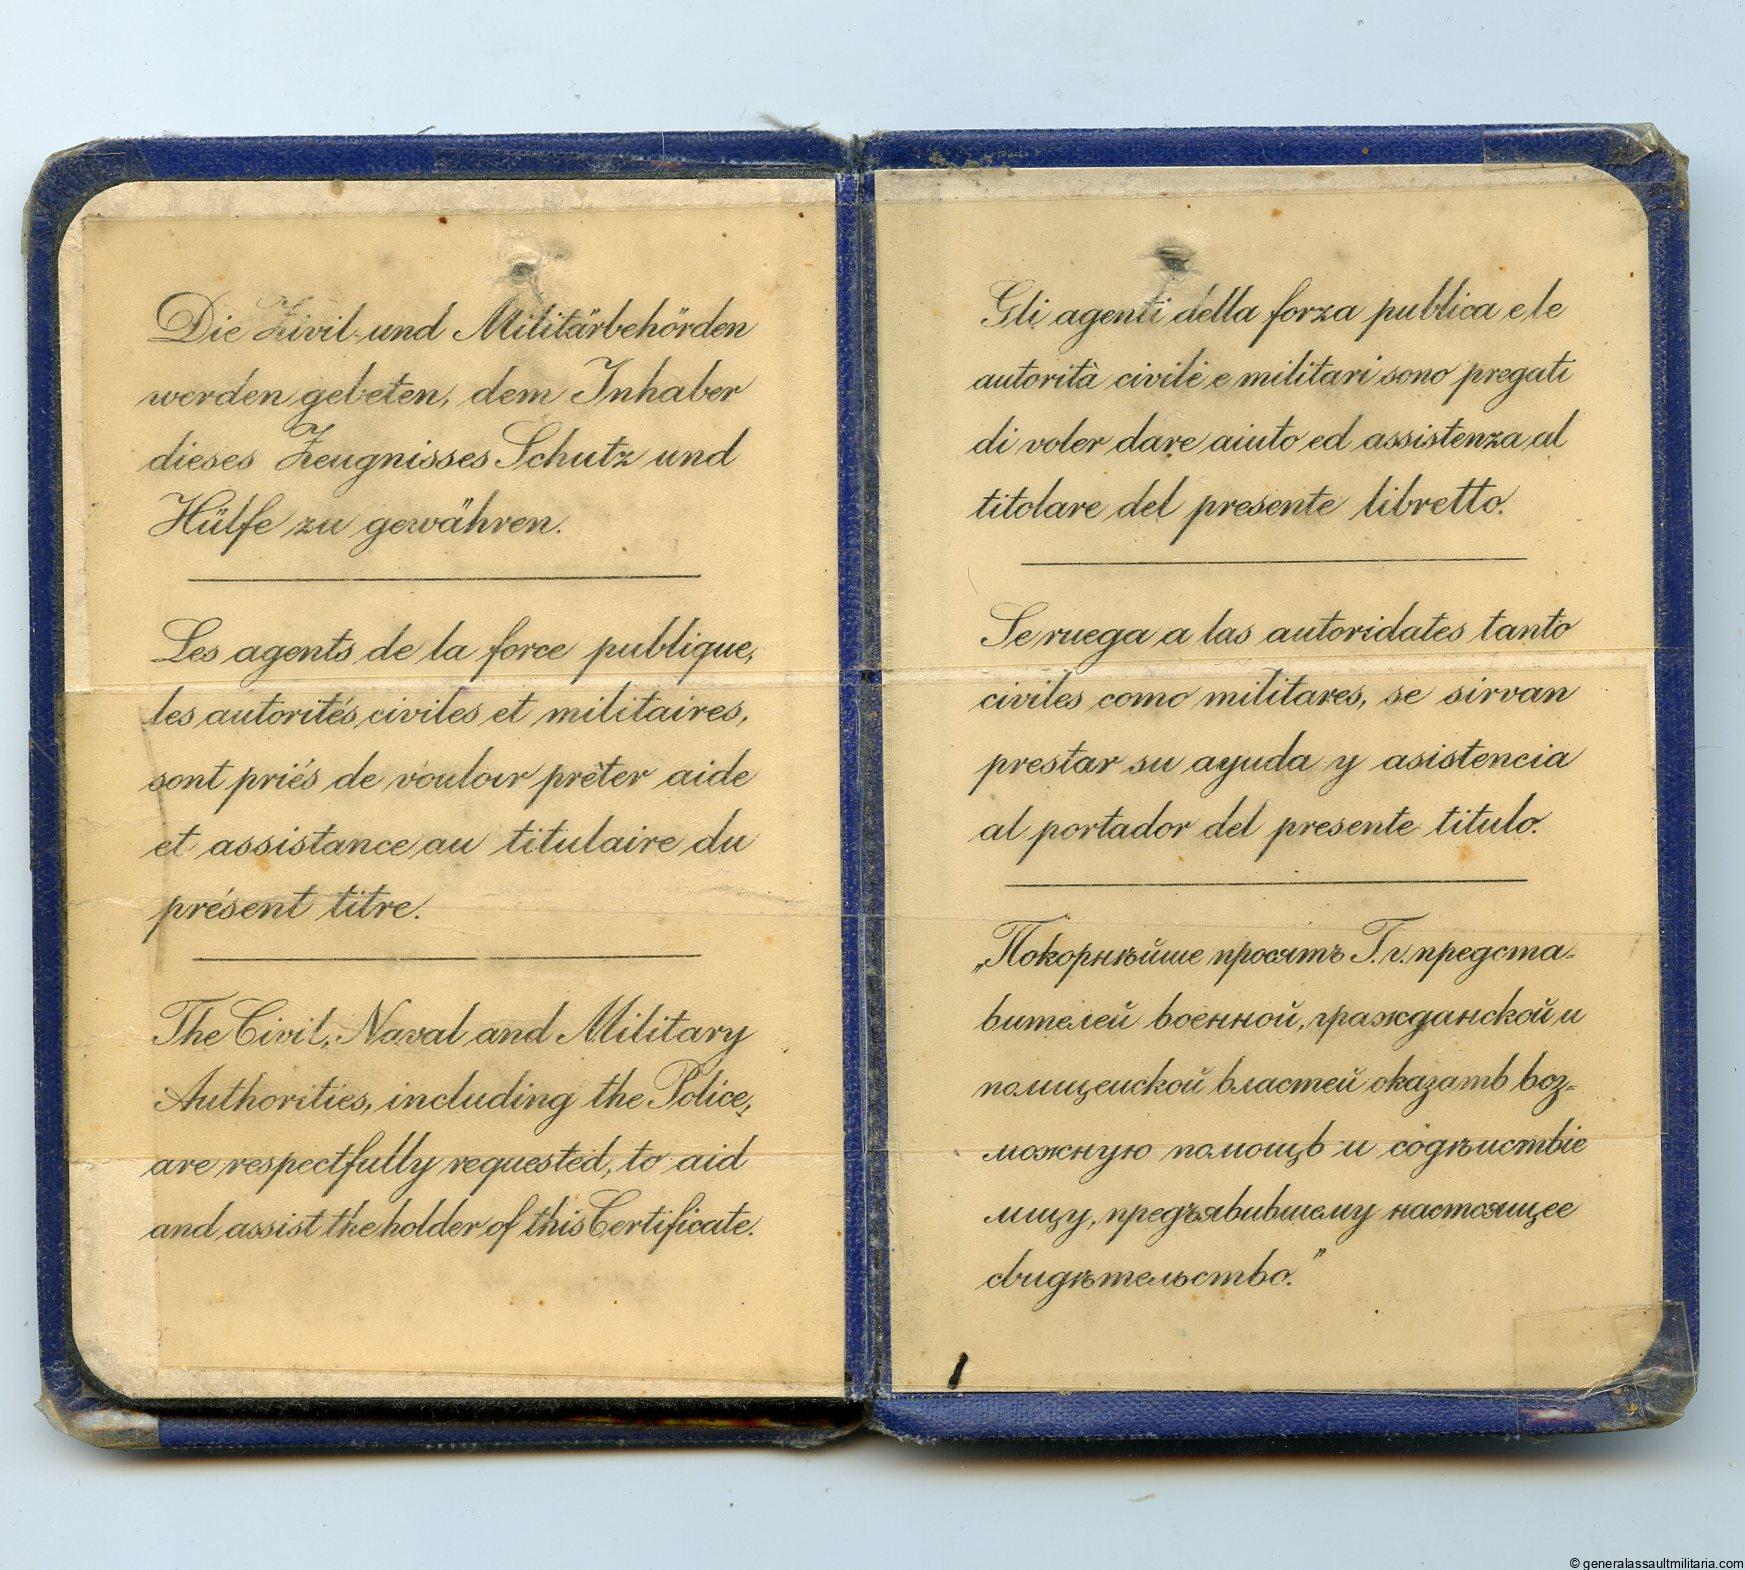 Die Zivil- und Militärbehörden
werden gebeten, dem Inhaber
dieses Zeugnisses Schutz und
Hülfe zu gewähren.
Les agents de la force publique,
les autorités civiles et militaires,
sont priés de vouloir prêter aide
et assistance au titulaire du
présent titre.
The Civil, Naval and Military
Authorities, including the Police,
are respectfully requested, to aid
and assist the holder of this Certificate.
Gli agenti della forza publica e le
autorità civile e militari sono pregati
di voler dare aiuto ed assistenza al
titolare del presente libretto.
Se ruega a las autoridates tanto
civiles como militares, se sirvan
prestar su ayuda y asistencia
al portador del presente titulo.
„Покорнѣйше просятъ Г.г. предста-
вителей военной, гражданской и
полицейской властей оказать воз-
можную помощь и содѣйствіе
лицу, предъявившему настоящее
свидѣтельство.”
© generalassaultmilitaria.com